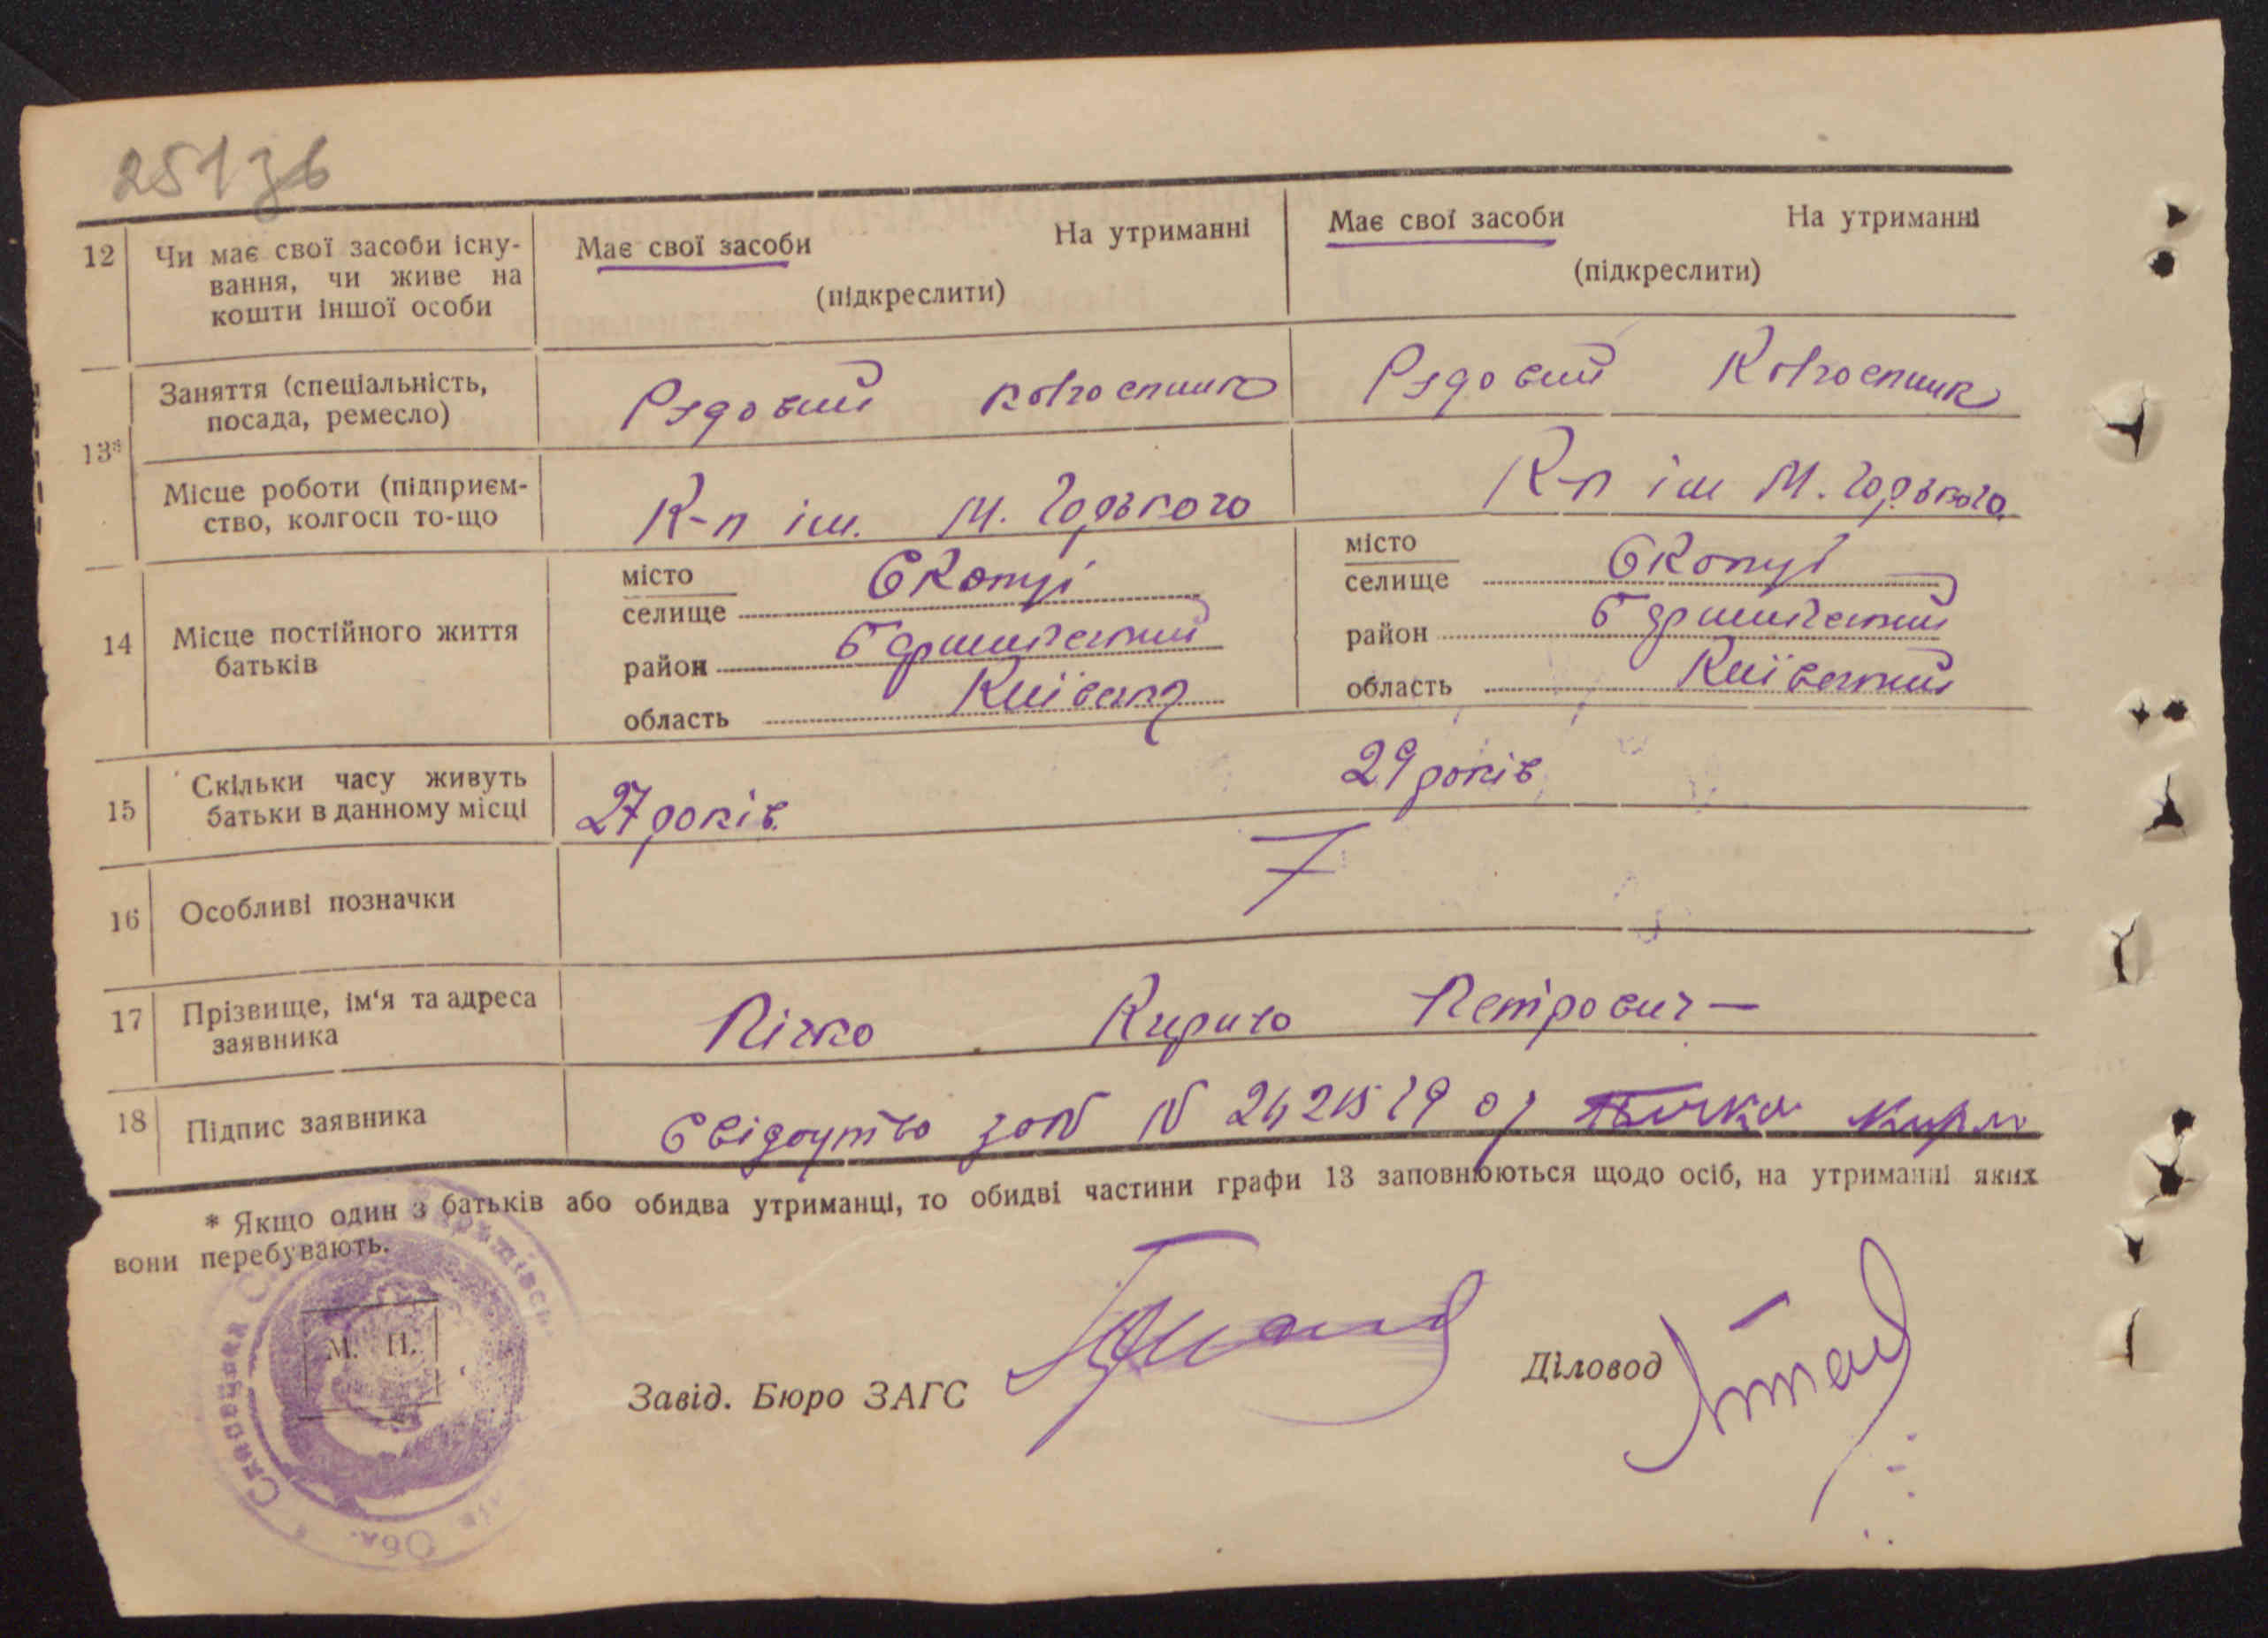 25136
12 Чи має свої засоби існу-
вання, чи живе на
кошти іншої особи
Має свої засоби На утриманні
(підкреслити)
Має свої засоби На утриманні
(підкреслити)
13* Заняття (спеціальність,
посада, ремесло)
Рядовий колгоспник
Рядовий Колгоспник
Місце роботи (підприєм-
ство, колгосп то-що
К-п ім. М. Горького
К-п ім М. Горького.
14 Місце постійного життя
батьків
місто
селище
район
область Київськ
місто
селище
район
область Київський
15 Скільки часу живуть
батьки в данному місці
27 років.
29 років
16 Особливі позначки
17 Прізвище, ім‘я та адреса
заявника
Пічко Кирило Петрович —
18 Підпис заявника
Свідоцтво
* Якщо один з батьків або обидва утриманці, то обидві частини графи 13 заповнюються щодо осіб, на утриманні яких
вони перебувають.
М. П.
Завід. Бюро ЗАГС
Діловод